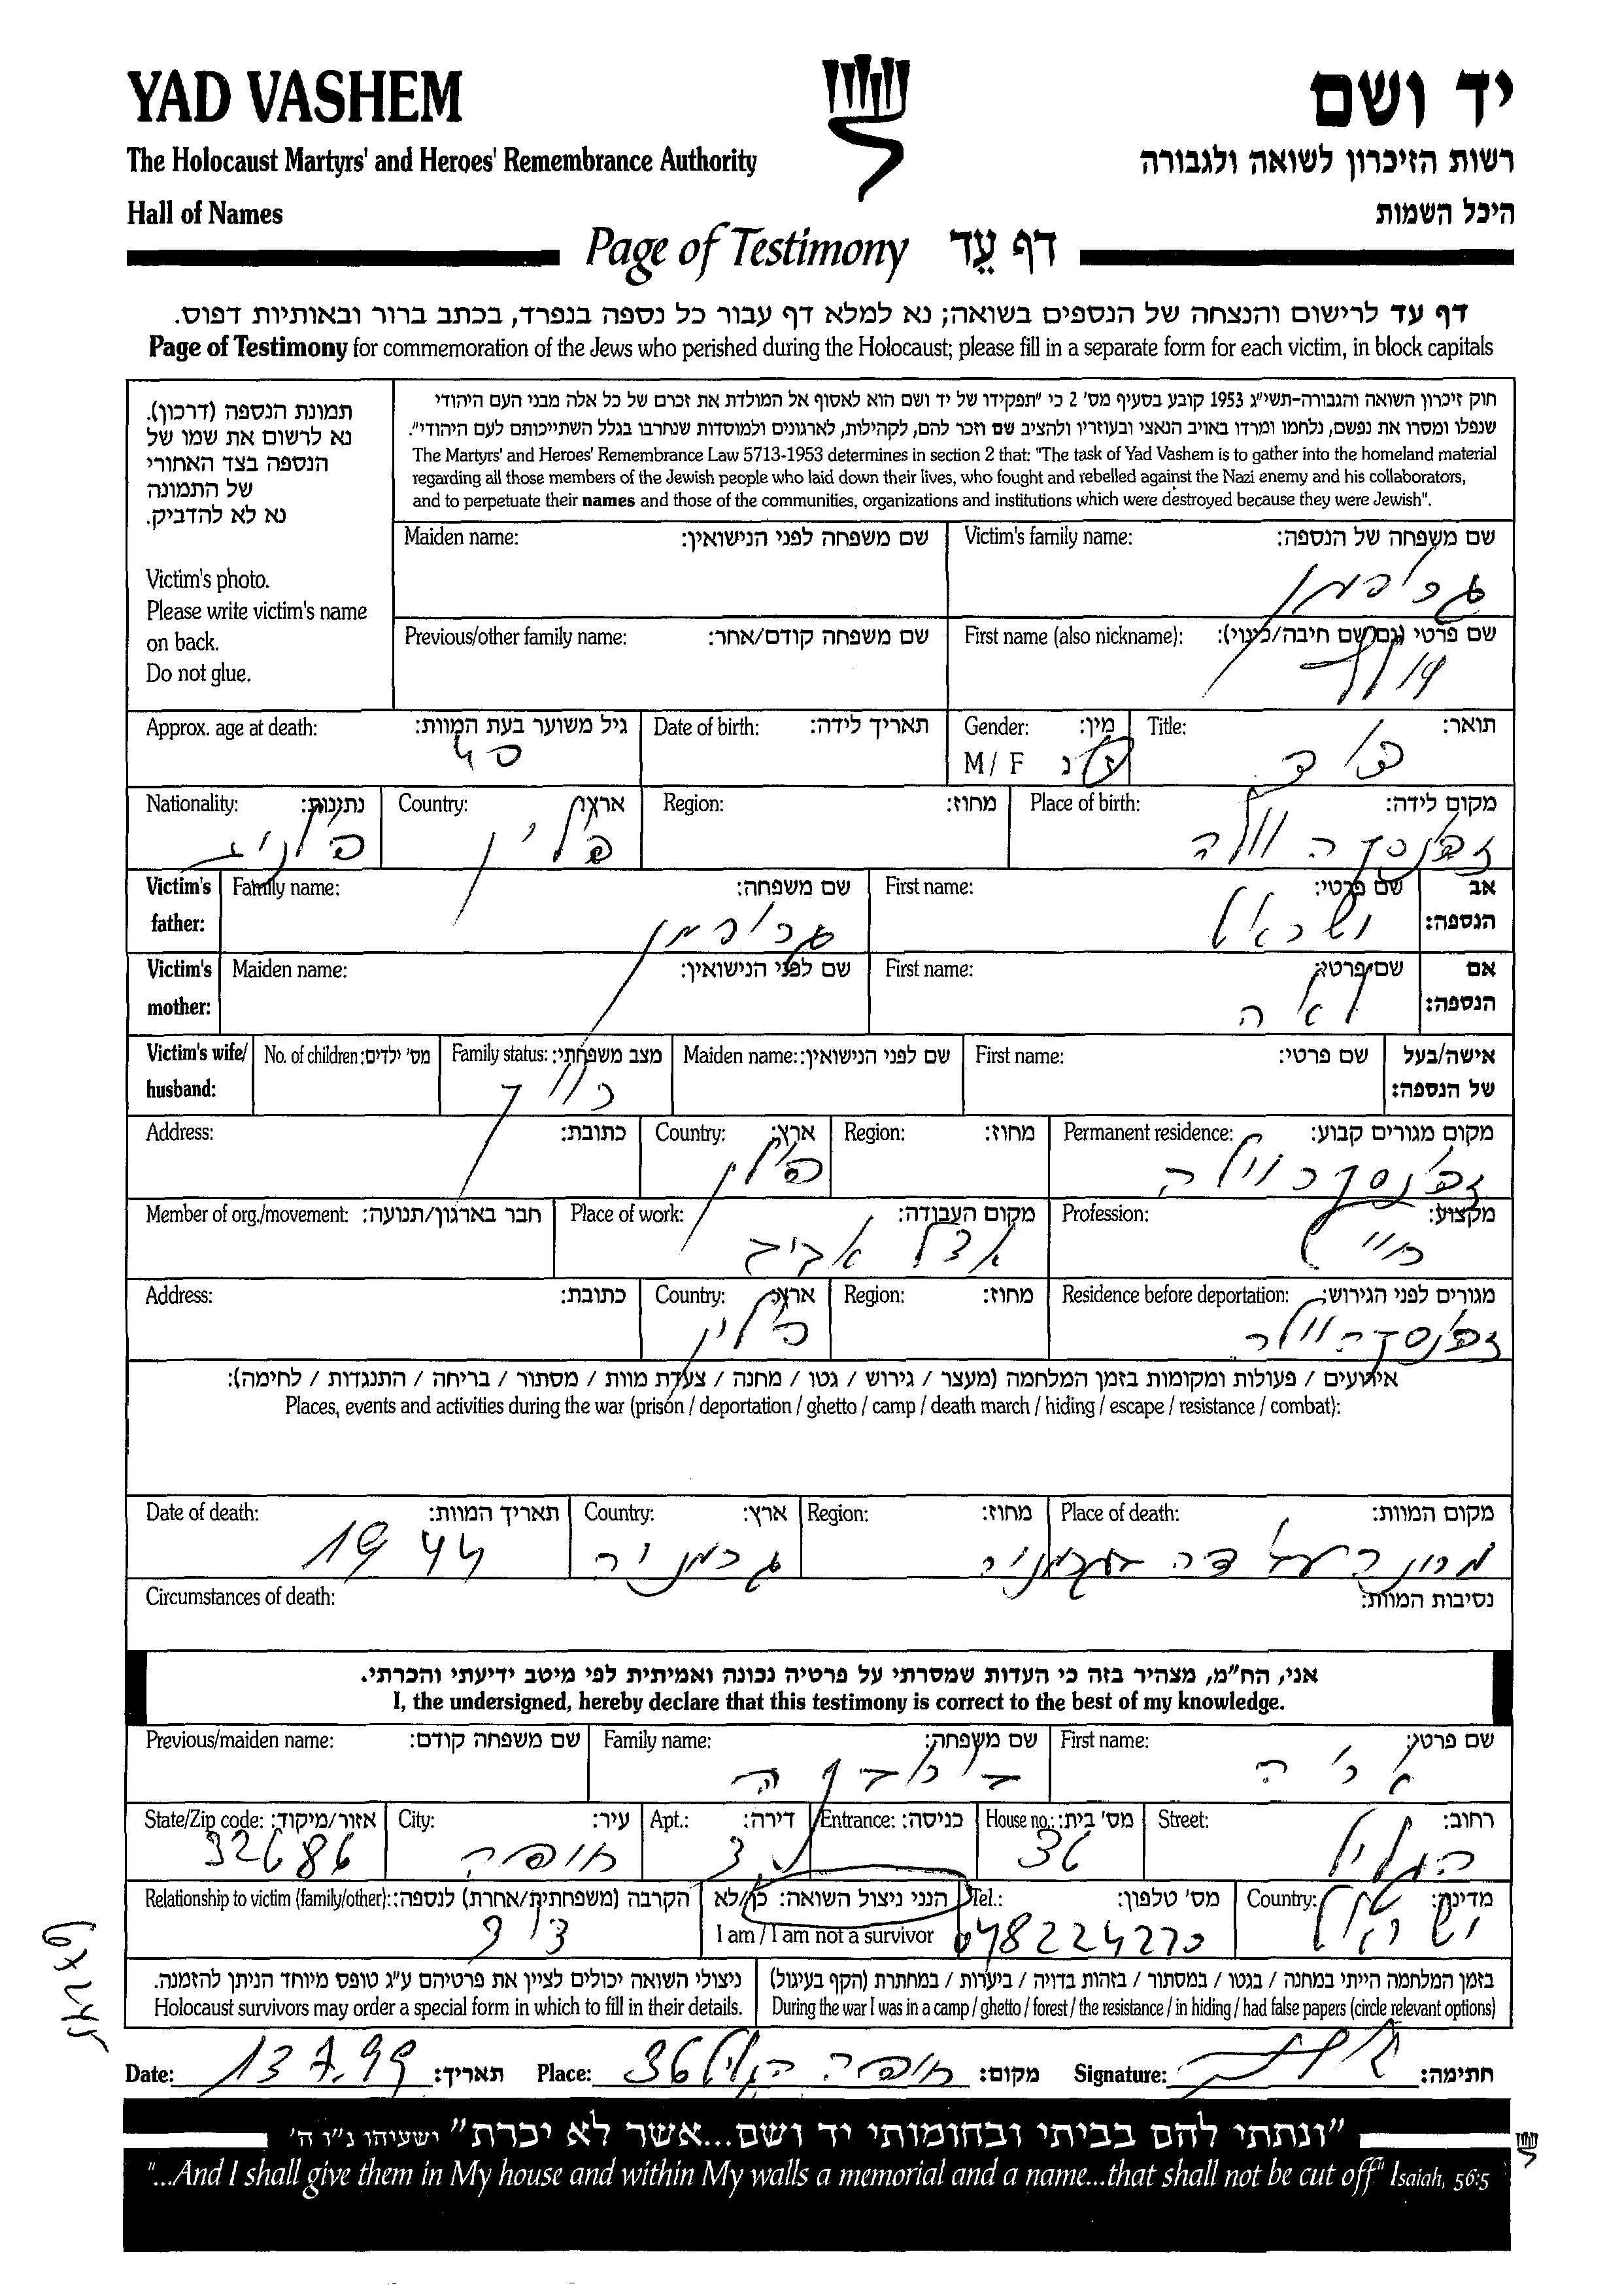 YAD VASHEM
יד ושם
The Holocaust Martyrs' and Heroes' Remembrance Authority
רשות הזיכרון לשואה ולגבורה
Hall of Names
היכל השמות
Page of Testimony דף עֵד
דף עד לרישום והנצחה של הנספים בשואה; נא למלא דף עבור כל נספה בנפרד, בכתב ברור ובאותיות דפוס.
Page of Testimony for commemoration of the Jews who perished during the Holocaust; please fill in a separate form for each victim, in block capitals
תמונת הנספה (דרכון).
נא לרשום את שמו של
הנספה בצד האחורי
של התמונה
נא לא להדביק.
Victim's photo.
Please write victim's name
on back.
Do not glue.
חוק זיכרון השואה והגבורה-תשי"ג 1953 קובע בסעיף מס' 2 כי "תפקידו של יד ושם הוא לאסוף אל המולדת את זכרם של כל אלה מבני העם היהודי
שנפלו ומסרו את נפשם, נלחמו ומרדו באויב הנאצי ובעוזריו ולהציב שם וזכר להם, לקהילות, לארגונים ולמוסדות שנחרבו בגלל השתייכותם לעם היהודי".
The Martyrs' and Heroes' Remembrance Law 5713-1953 determines in section 2 that: "The task of Yad Vashem is to gather into the homeland material
regarding all those members of the Jewish people who laid down their lives, who fought and rebelled against the Nazi enemy and his collaborators,
and to perpetuate their names and those of the communities, organizations and institutions which were destroyed because they were Jewish".
Victim's family name: שם משפחה של הנספה:
Maiden name: שם משפחה לפני הנישואין:
First name (also nickname): שם פרטי (גם שם חיבה/כינוי):
Previous/other family name: שם משפחה קודם/אחר:
Title: תואר:
Gender: מין:
M / F ז/נ
Date of birth: תאריך לידה:
Approx. age at death: גיל משוער בעת המוות:
40
Place of birth: מקום לידה:
זדונסקה וולה
Region: מחוז:
Country: ארץ:
פולין
Nationality: נתינות:
פולניה
אב הנספה: Victim's father:
First name: שם פרטי:
ישראל
Family name: שם משפחה:
אם הנספה: Victim's mother:
First name: שם פרטי:
לאה
Maiden name: שם לפני הנישואין:
אישה/בעל של הנספה: Victim's wife/ husband:
First name: שם פרטי:
Maiden name: שם לפני הנישואין:
Family status: מצב משפחתי:
רווק
No. of children: מס' ילדים:
Permanent residence: מקום מגורים קבוע:
Region: מחוז:
Country: ארץ:
פולין
Address: כתובת:
Profession: מקצוע:
חייט
Place of work: מקום העבודה:
אצל אביב
Member of org./movement: חבר בארגון/תנועה:
Residence before deportation: מגורים לפני הגירוש:
זדונסקה וולה
Region: מחוז:
Country: ארץ:
פולין
Address: כתובת:
אירועים / פעולות ומקומות בזמן המלחמה (מעצר / גירוש / גטו / מחנה / צעדת מוות / מסתור / בריחה / התנגדות / לחימה):
Places, events and activities during the war (prison / deportation / ghetto / camp / death march / hiding / escape / resistance / combat):
Place of death: מקום המוות:
Region: מחוז:
Country: ארץ:
גרמניה
Date of death: תאריך המוות:
1944
Circumstances of death: נסיבות המוות:
אני, הח"מ, מצהיר בזה כי העדות שמסרתי על פרטיה נכונה ואמיתית לפי מיטב ידיעתי והכרתי.
I, the undersigned, hereby declare that this testimony is correct to the best of my knowledge.
First name: שם פרטי:
Family name: שם משפחה:
Previous/maiden name: שם משפחה קודם:
Street: רחוב:
הגליל
House no.: מס' בית:
36
Entrance: כניסה:
Apt.: דירה:
3
City: עיר:
חיפה
State/Zip code: אזור/מיקוד:
32686
Country: מדינה:
ישראל
Tel.: מס' טלפון:
048224270
הנני ניצול השואה: כן/לא
I am / I am not a survivor
Relationship to victim (family/other): הקרבה (משפחתית/אחרת) לנספה:
דוד
בזמן המלחמה הייתי במחנה / בגטו / במסתור / בזהות בדויה / ביערות / במחתרת (הקף בעיגול)
During the war I was in a camp / ghetto / forest / the resistance / in hiding / had false papers (circle relevant options)
ניצולי השואה יכולים לציין את פרטיהם ע"ג טופס מיוחד הניתן להזמנה.
Holocaust survivors may order a special form in which to fill in their details.
Date: 13.7.99 תאריך:
Place: חיפה הגליל 36 מקום:
Signature: חתימה:
"ונתתי להם בביתי ובחומותי יד ושם...אשר לא יכרת" ישעיהו נ"ו ה'
"...And I shall give them in My house and within My walls a memorial and a name...that shall not be cut off" Isaiah, 56:5